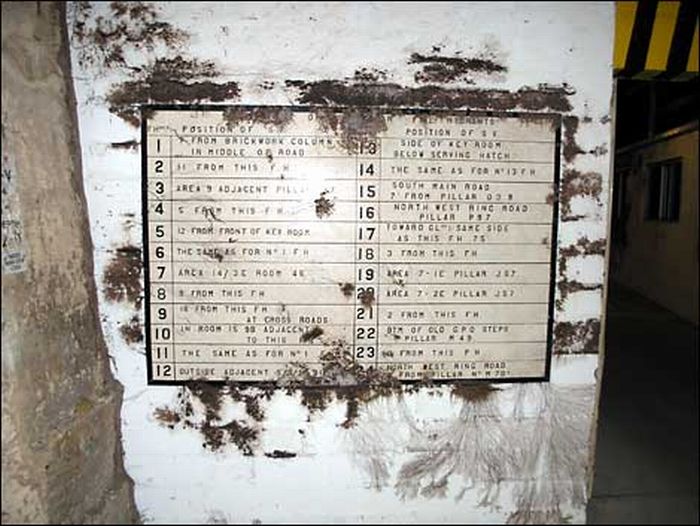 POSITION OF S V
1 FROM BRICKWORK COLUMN
IN MIDDLE OF ROAD
2 11 FROM THIS F H
3 AREA 9 ADJACENT PILLA
4 5 FROM THIS F H
5 12 FROM FRONT OF KEY ROOM
6 THE SAME AS FOR Nº 1 F H
7 AREA 14/3E ROOM 46
8 9 FROM THIS F H
9 18 FROM THIS F H
AT CROSS ROADS
10 IN ROOM IS 98 ADJACENT
TO THIS
11 THE SAME AS FOR Nº 1
12 OUTSIDE ADJACENT
HYDRANTS
POSITION OF S V
13 SIDE OF KEY ROOM
BELOW SERVING HATCH
14 THE SAME AS FOR Nº 13 F H
15 SOUTH MAIN ROAD
7' FROM PILLAR
16 NORTH WEST RING ROAD
PILLAR P 97
17 TOWARD SAME SIDE
AS THIS F H 75
18 3 FROM THIS F H
19 AREA 7-1E PILLAR J57
20 AREA 7-2E PILLAR J57
21 2 FROM THIS F H
22 BTM OF OLD G.P.O STEPS
PILLAR M 49
23 FROM THIS F H
24 NORTH WEST RING ROAD
FROM PILLAR Nº M 70